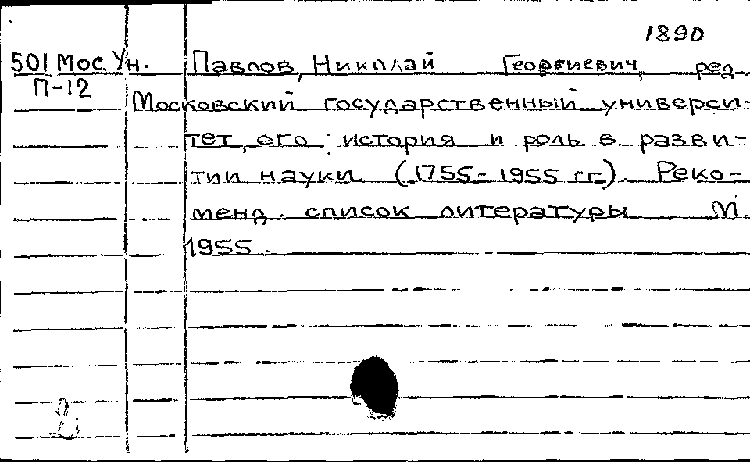 1890
501 Мос. Ун. Павлов, Николай Георгиевич, ред.
П-12 Московский государственный универси-
тет, его история и роль в разви-
тии науки. (1755-1955 гг.). Реко-
менд. список литературы. М.
1955.
2